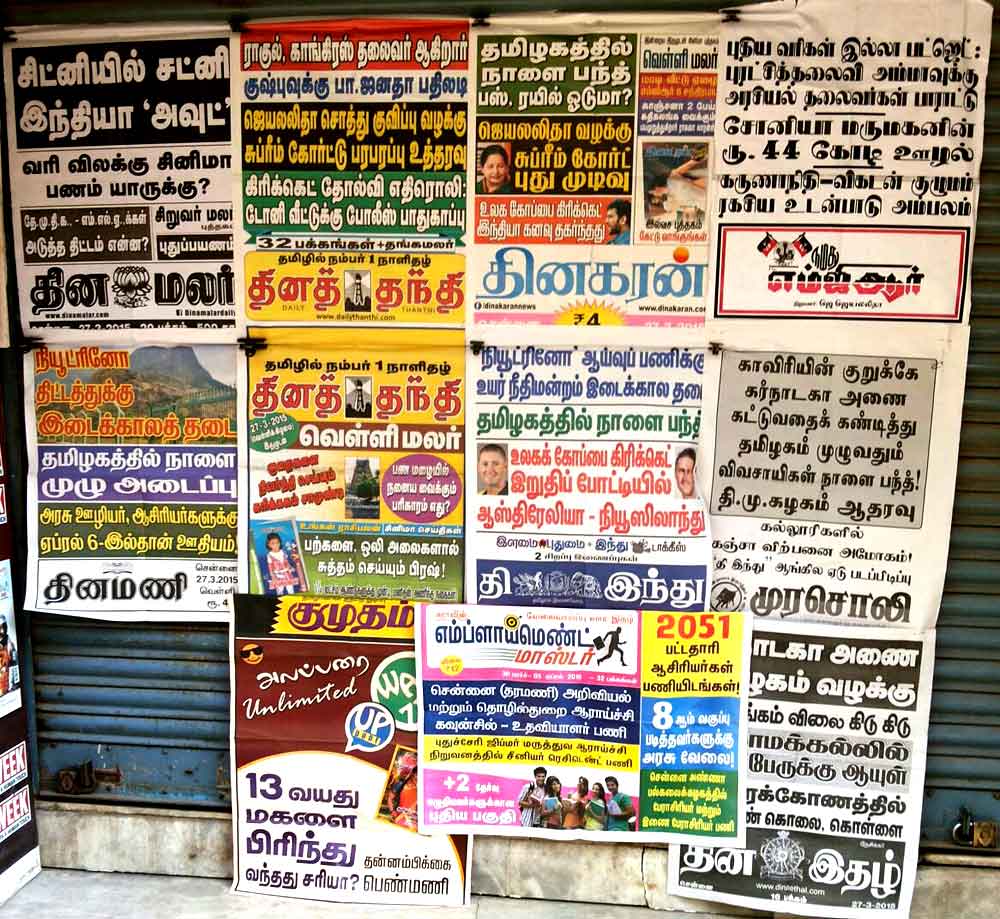 சிட்னியில் சட்னி
இந்தியா 'அவுட்'
வரி விலக்கு சினிமா
பணம் யாருக்கு?
தே.மு.தி.க., - எம்.எல்.ஏ.,க்கள்
அடுத்த திட்டம் என்ன?
சிறுவர் மல
புதுப்பயண
தின மலர்
www.dinamalar.com
Dinamalardaily
27-3-2015
ராகுல், காங்கிரஸ் தலைவர் ஆகிறார்
குஷ்புவுக்கு பா.ஜனதா பதிலடி
ஜெயலலிதா சொத்து குவிப்பு வழக்கு
சுப்ரீம் கோர்ட்டு பரபரப்பு உத்தரவு
கிரிக்கெட் தோல்வி எதிரொலி:
டோனி வீட்டுக்கு போலீஸ் பாதுகாப்பு
32 பக்கங்கள்+தங்கமலர்
தமிழில் நம்பர் 1 நாளிதழ்
தினத் தந்தி
DAILY THANTHI
www.dailythanthi.com
தமிழகத்தில்
நாளை பந்த்
பஸ், ரயில் ஓடுமா?
வெள்ளி மலர்
காஞ்சனா 2 பேய்
ஜெயலலிதா வழக்கு
சுப்ரீம் கோர்ட்
புது முடிவு
உலக கோப்பை கிரிக்கெட்
இந்தியா கனவு தகர்ந்தது
இலவச புத்தகம்
கேட்டு வாங்குங்கள்
தினகரன்
/dinakarannews
www.dinakaran.com
₹4
புதிய வரிகள் இல்லா பட்ஜெட்:
புரட்சித்தலைவி அம்மாவுக்கு
அரசியல் தலைவர்கள் பாராட்டு
சோனியா மருமகனின்
ரூ. 44 கோடி ஊழல்
கருணாநிதி-விகடன் குழுமம்
ரகசிய உடன்பாடு அம்பலம்
நமது
எம்.ஜி.ஆர்
நிறுவனர்: ஜெ ஜெயலலிதா
நியூட்ரினோ
திட்டத்துக்கு
இடைக்காலத் தடை
தமிழகத்தில் நாளை
முழு அடைப்பு
அரசு ஊழியர், ஆசிரியர்களுக்கு
ஏப்ரல் 6-இல்தான் ஊதியம்
தினமணி
சென்னை
27.3.2015
வெள்ளி
ரூ. 4
தமிழில் நம்பர் 1 நாளிதழ்
தினத் தந்தி
27-3-2015
வெள்ளி மலர்
பண மழையில்
நனைய வைக்கும்
பரிகாரம் எது?
உங்கள் ராசிபலன்
சினிமா செய்திகள்
பற்களை, ஒலி அலைகளால்
சுத்தம் செய்யும் பிரஷ்!
'நியூட்ரினோ' ஆய்வுப் பணிக்கு
உயர் நீதிமன்றம் இடைக்கால தடை
தமிழகத்தில் நாளை பந்த்
உலகக் கோப்பை கிரிக்கெட்
இறுதிப் போட்டியில்
ஆஸ்திரேலியா - நியூஸிலாந்து
இளமை புதுமை + இந்து டாக்கீஸ்
2 சிறப்பு இணைப்புகள்
தி இந்து
காவிரியின் குறுக்கே
கர்நாடகா அணை
கட்டுவதைக் கண்டித்து
தமிழகம் முழுவதும்
விவசாயிகள் நாளை பந்த்!
தி.மு.கழகம் ஆதரவு
கல்லூரிகளில்
கஞ்சா விற்பனை அமோகம்!
'தி இந்து' ஆங்கில ஏடு படப்பிடிப்பு
முரசொலி
குமுதம்
அலப்பறை
Unlimited
UP
13 வயது
மகளை
பிரிந்து
வந்தது சரியா?
தன்னம்பிக்கை
பெண்மணி
எம்ப்ளாய்மெண்ட்
மாஸ்டர்
சென்னை (தரமணி) அறிவியல்
மற்றும் தொழில்துறை ஆராய்ச்சி
கவுன்சில் - உதவியாளர் பணி
புதுச்சேரி ஜிப்மர் மருத்துவ ஆராய்ச்சி
நிறுவனத்தில் சீனியர் ரெசிடெண்ட் பணி
+2 தேர்வு
எழுதியவர்களுக்கான
புதிய பகுதி
2051
பட்டதாரி
ஆசிரியர்கள்
பணியிடங்கள்!
8 ஆம் வகுப்பு
படித்தவர்களுக்கு
அரசு வேலை!
சென்னை அண்ணா
பல்கலைக்கழகத்தில்
பேராசிரியர் மற்றும்
இணை பேராசிரியர் பணி
டகா அணை
ழகம் வழக்கு
ங்கம் விலை கிடு கிடு
ாமக்கல்லில்
பேருக்கு ஆயுள்
ரக்கோணத்தில்
ண் கொலை, கொள்ளை
தின இதழ்
www.diniethal.com
16 பக்கம்
27-3-2015
சென்னை
WEEK
WEEK